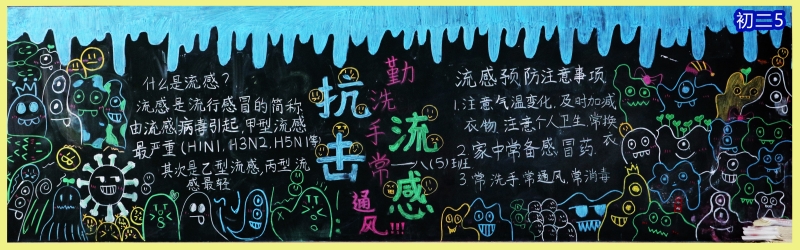 初二5
什么是流感？
流感是流行感冒的简称
由流感病毒引起，甲型流感
最严重(H1N1，H3N2，H5N1等)
其次是乙型流感，丙型流
感最轻
抗击
流感
勤洗手常
通风!!!
——八(5)班
流感预防注意事项
1.注意气温变化，及时加减
衣物，注意个人卫生，常换
衣
2.家中常备感冒药.
3.常洗手，常通风，常消毒